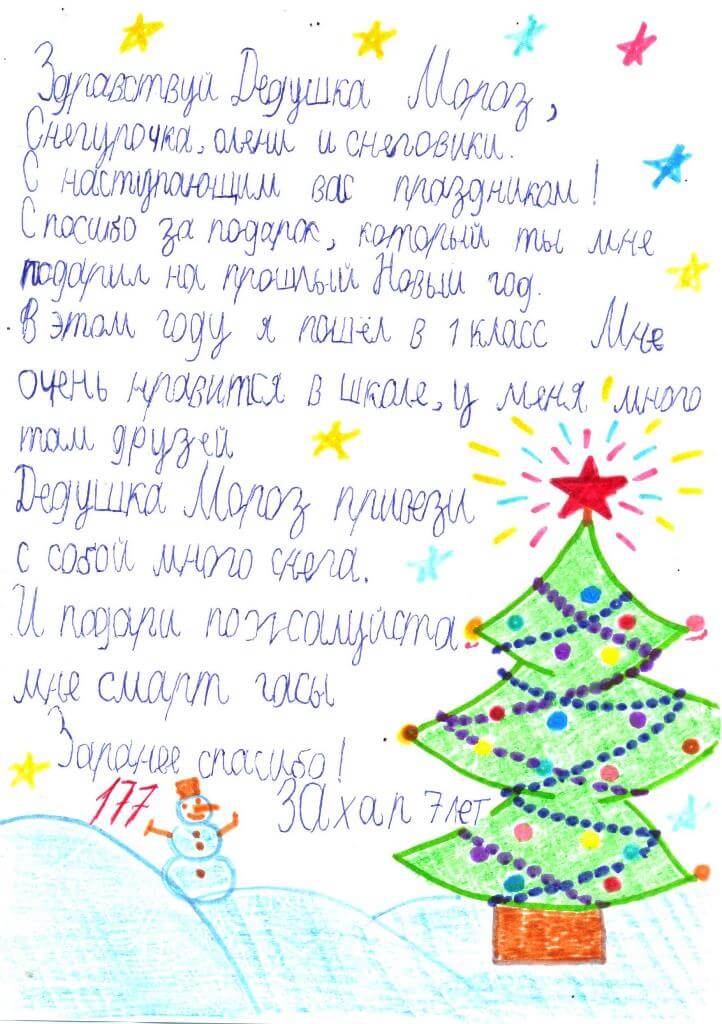 Здравствуй Дедушка Мороз,
Снегурочка, олени и снеговики.
С наступающим вас праздником!
Спосибо за подарок, который ты мне
подарил на прошлый Новый год.
В этом году я пошёл в 1 класс Мне
очень нравится в школе, у меня много
там друзей
Дедушка Мороз привези
с собой много снега.
И подари пожалуйста
мне смарт часы
Заранее спасибо!
177
Захар 7 лет